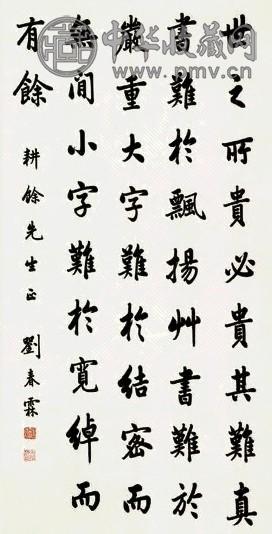 世之所貴必貴其難真
書難於飄揚艸書難於
嚴重大字難於結密而
無间小字難於寬綽而
有餘
耕餘先生正
劉春霖
中华收藏网
www.pmv.cn